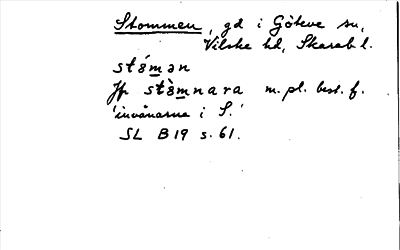 Stommen, gd i Göteve sn,
Vilske hd, Skarab l.
stɜ́mən
Jfr stɜ̀mnara m. pl. best. f.
'invånarna i S.'
SL B19 s. 61.